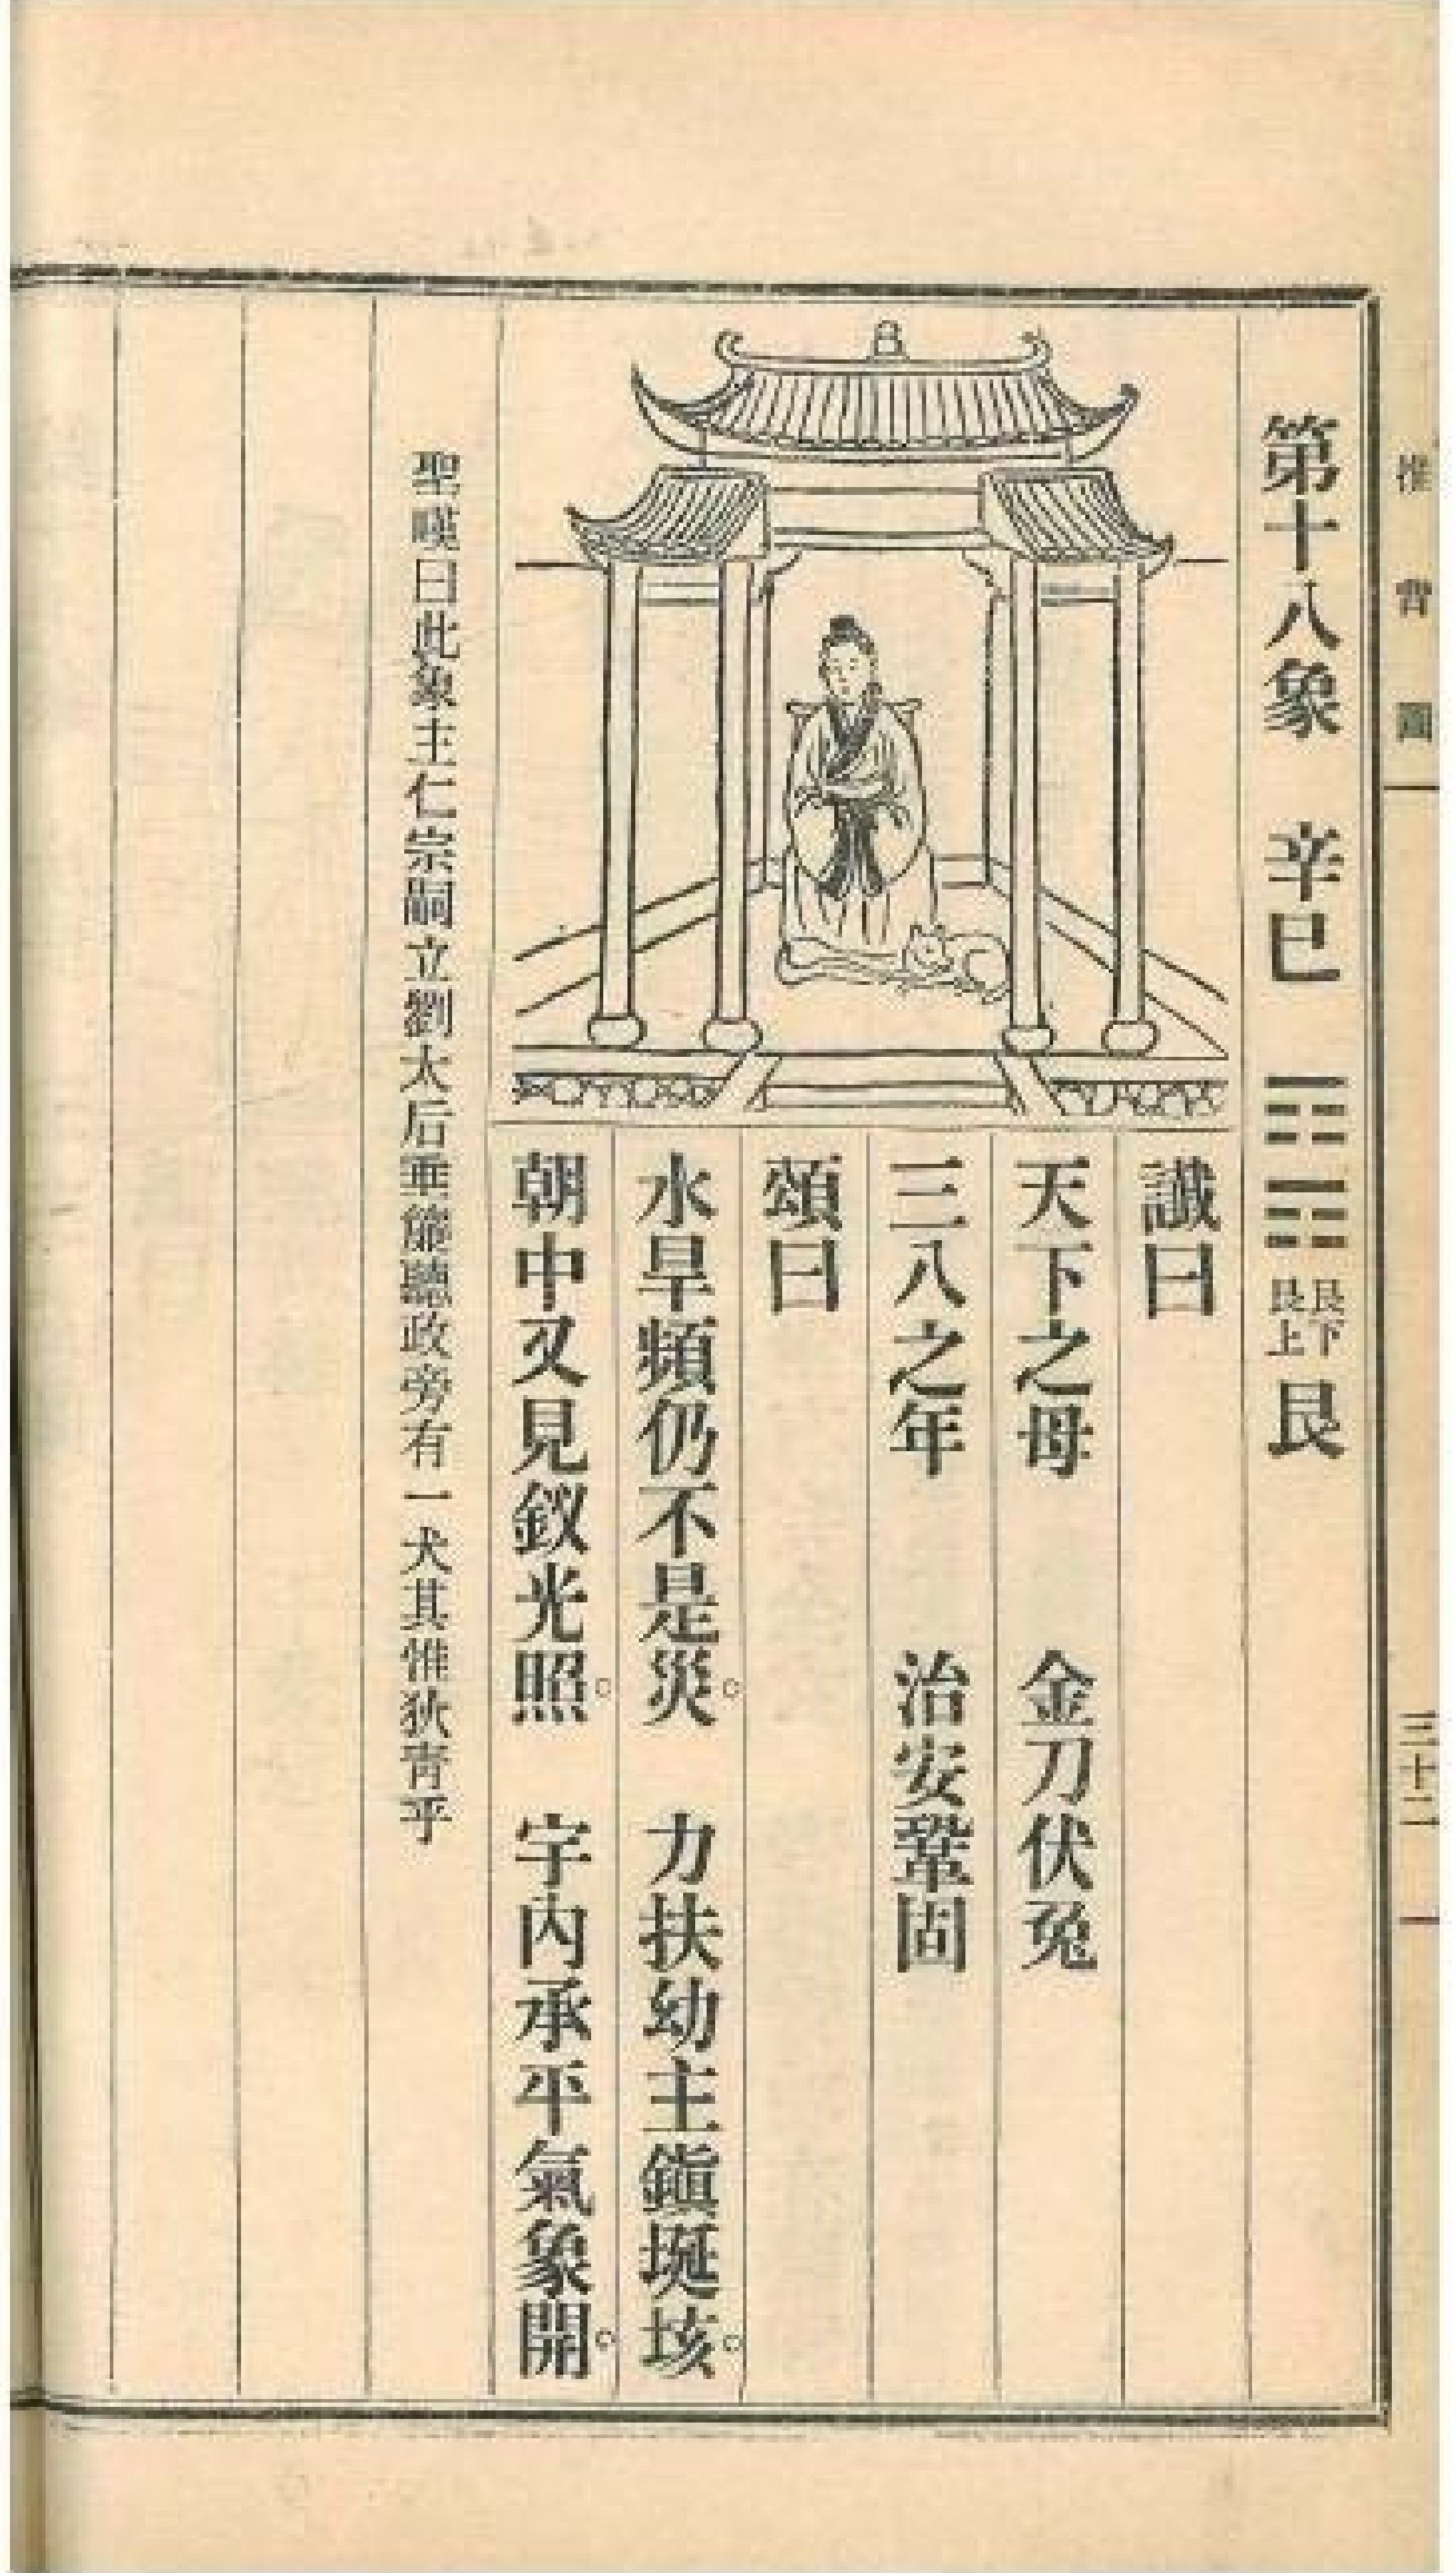 推背圖
三十二
第十八象 辛巳 艮下艮上 艮
讖曰
天下之母 金刀伏兔
三八之年 治安鞏固
頌曰
水旱頻仍不是災。 力扶幼主鎮埏垓。
朝中又見釵光照。 宇內承平氣象開。
聖嘆曰此象主仁宗嗣立劉太后垂簾聽政旁有一犬其惟狄青乎